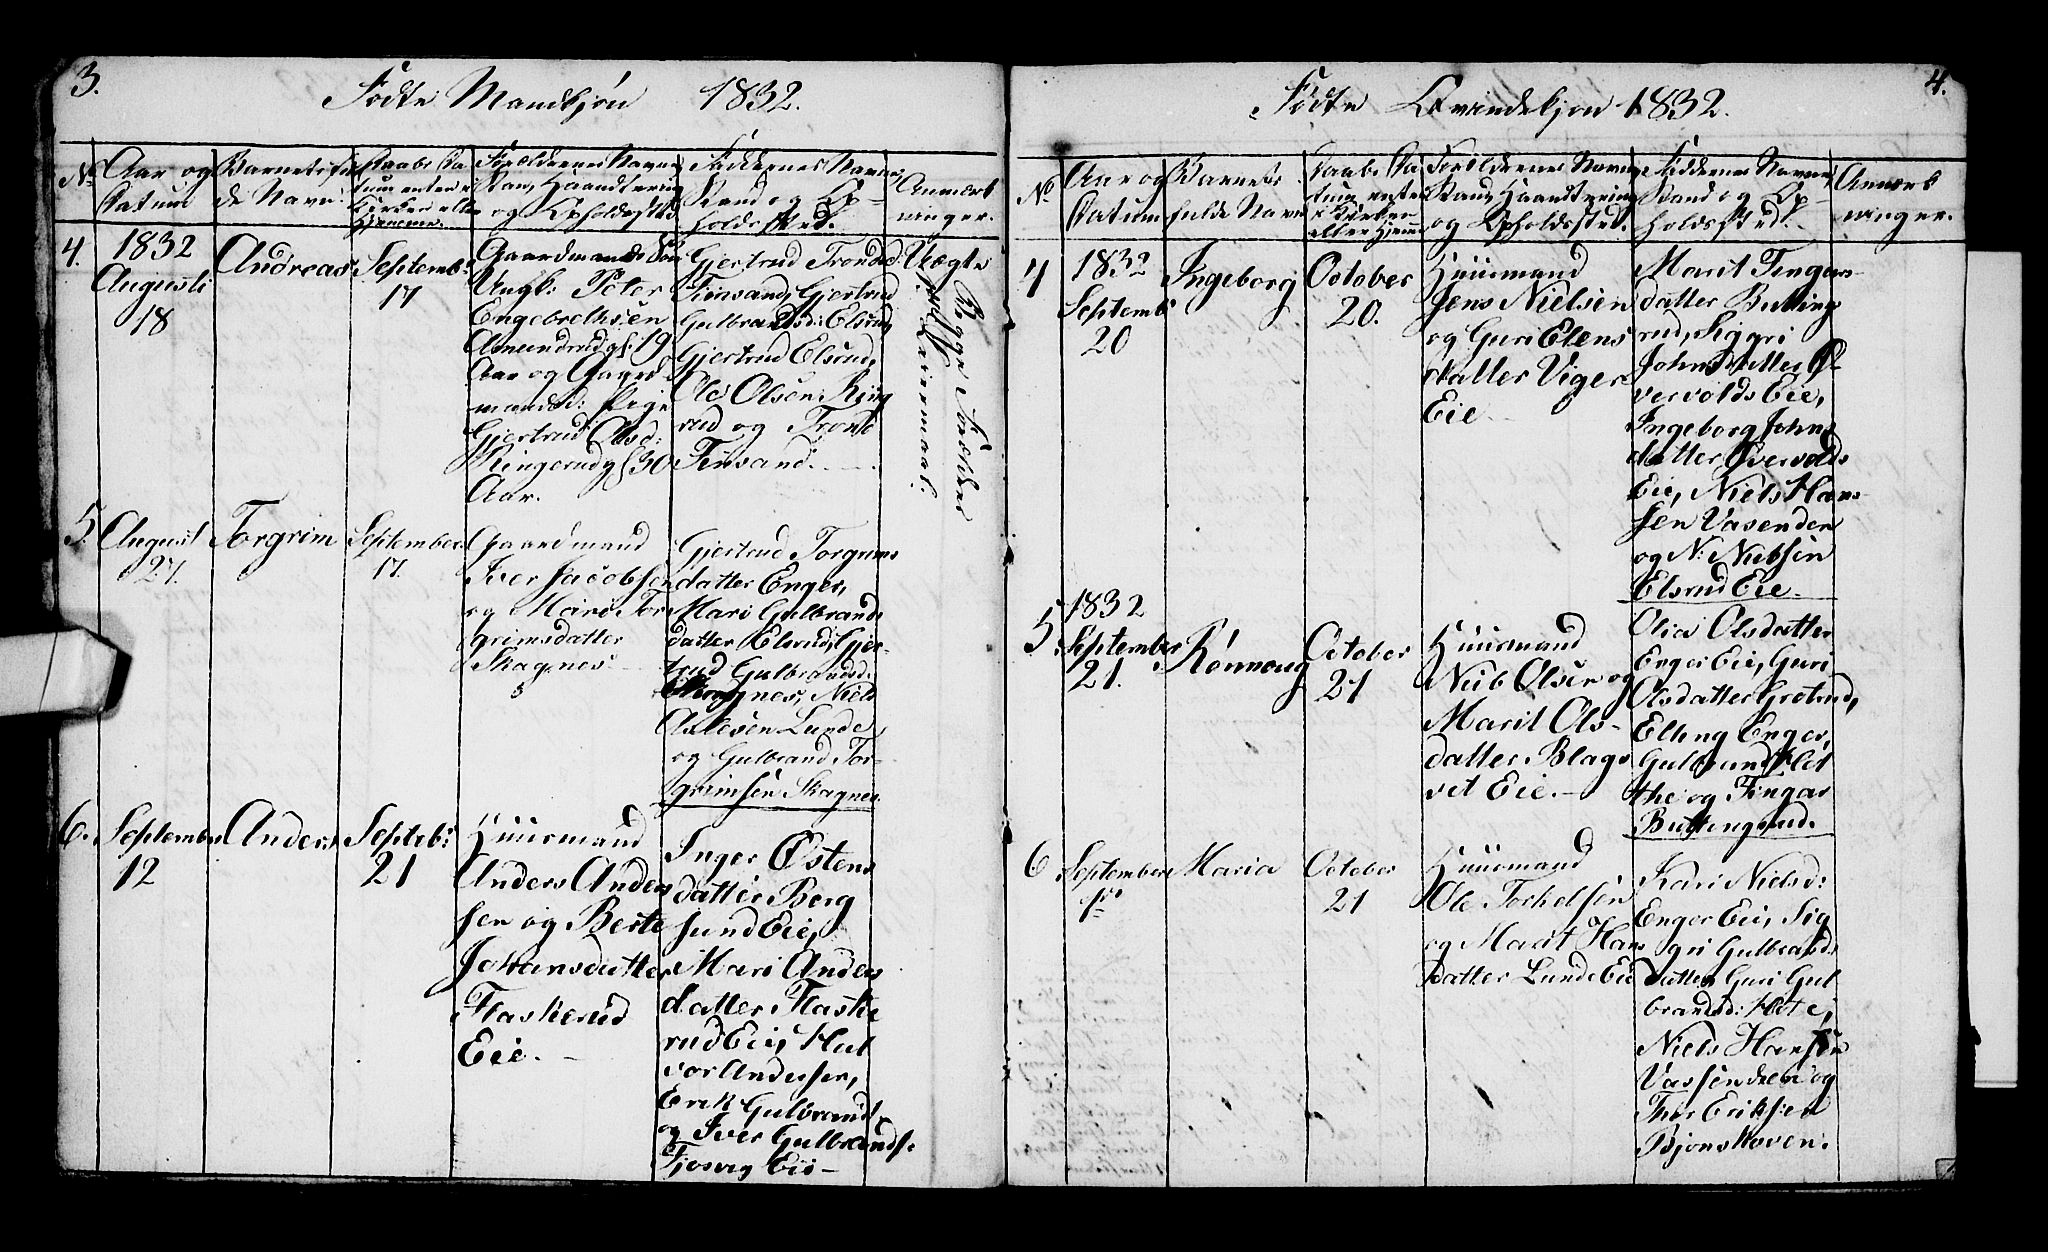 3.
Fødte Mandkjøn 1832.
No
Aar og
Datum
Barnets ful-
de Navn
Daabs Da
tum enten i
Kirken eller
Hjemme.
Forældrenes Navne
Stand, Haandtering
og Opholdssted
Faddernes Navne
Stand og Op-
holdssted.
Anmærk
ninger.
4.
1832
Augusti
18
Andreas
Septemb:
17
Gaardmands Søn
Ungk: Peter
Engebrethsen
Asmundrud gl: 19
Aar og Gaard
mandsd: Pige
Gjertrud Olsd:
Ringerud gl 30
Aar.
Gjertrud Tronds
Finsand, Gjertrud
Gulbrandsd: Elsrud
Gjertrud Elsrud,
Ole Olsen Ring
rud og Trond
Finsand.
Uægte
Begge Forældres
Leiermaal:
5.
August
27.
Torgrim
September
17.
Gaardmand
Iver Jacobsen
og Mari Tor
grimsdatter
Skagnes
Gjertrud Torgrims
datter Enger,
Mari Gulbrands
datter Elsrud, Gjer-
trud Gulbrandsd.
Niels
Aslesen Lunde
og Gulbrand Tor-
grimsen Skagnes.
6.
September
12
Anders
Septeb:
21
Huusmand
Anders Anders
sen og Berte
Johansdatter
Flaskerud
Eie.
Inger Østens
datter Berg
sund Eie,
Mari Anders
datter Flaske
rud Eie, Hal
vor Andersen,
Erik Gulbrands
og Iver Gulbrands:
Fjosvig Eie
4.
Fødte Qvindekjøn 1832.
No
Aar og
Datum
Barnets
fulde Navn
Daabs Da
tum, enten
i Kirken
eller Hjemme
Forældrenes Navne
Stand, Haandtering
og Opholdssted.
Faddernes Navne,
Stand og Op-
holdssted.
Anmærk
ninger.
4
1832
Septemb
20
Ingeborg
October
20.
Huusmand
Jens Nielsen
og Guri Elens
datter Viger
Eie
Marit Fingars-
datter Butting
rud, Siggri
Johnsdatter Ø-
vervolds Eie,
Ingeborg Johns
datter Øvervolds
Eie, Niels Han-
sen Vasenden
og N: Nielsen
Elsrud Eie.
5.
1832
September
21.
Rønnoug
October
21
Huusmand
Niels Olsen og
Marit Ols-
datter Blags
vet Eie.
Olia Olsdatter
Enger Eie, Guri
Olsdatter Grøterud,
Elling Enger,
Gulbrand
og Fingar
Buttingsrud.
6
September
Maria
October
21
Huusmand
Ole Torkelsen
og Marit Hans
datter Lunde Eie
Kari Nielsd:
Enger Eie, Sig
gri Gulbrands
datter, Guri Gul
brandsd:
Niels Hansen
Vassenden og
Thor Eriksen
Bjonskoven.